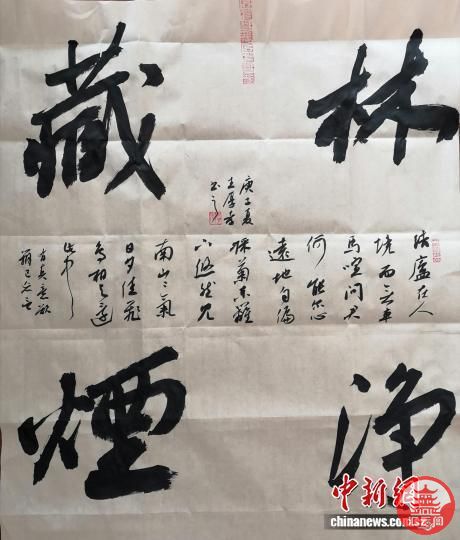 林
藏
庚子夏
結廬在人
境而无車
馬喧問君
何能尔心
遠地自偏
採菊東籬
下悠然見
南山〻氣
日夕佳飛
鳥相與還
此中
有真意欲
辯已忘言
净
煙
中新
chinanews.com